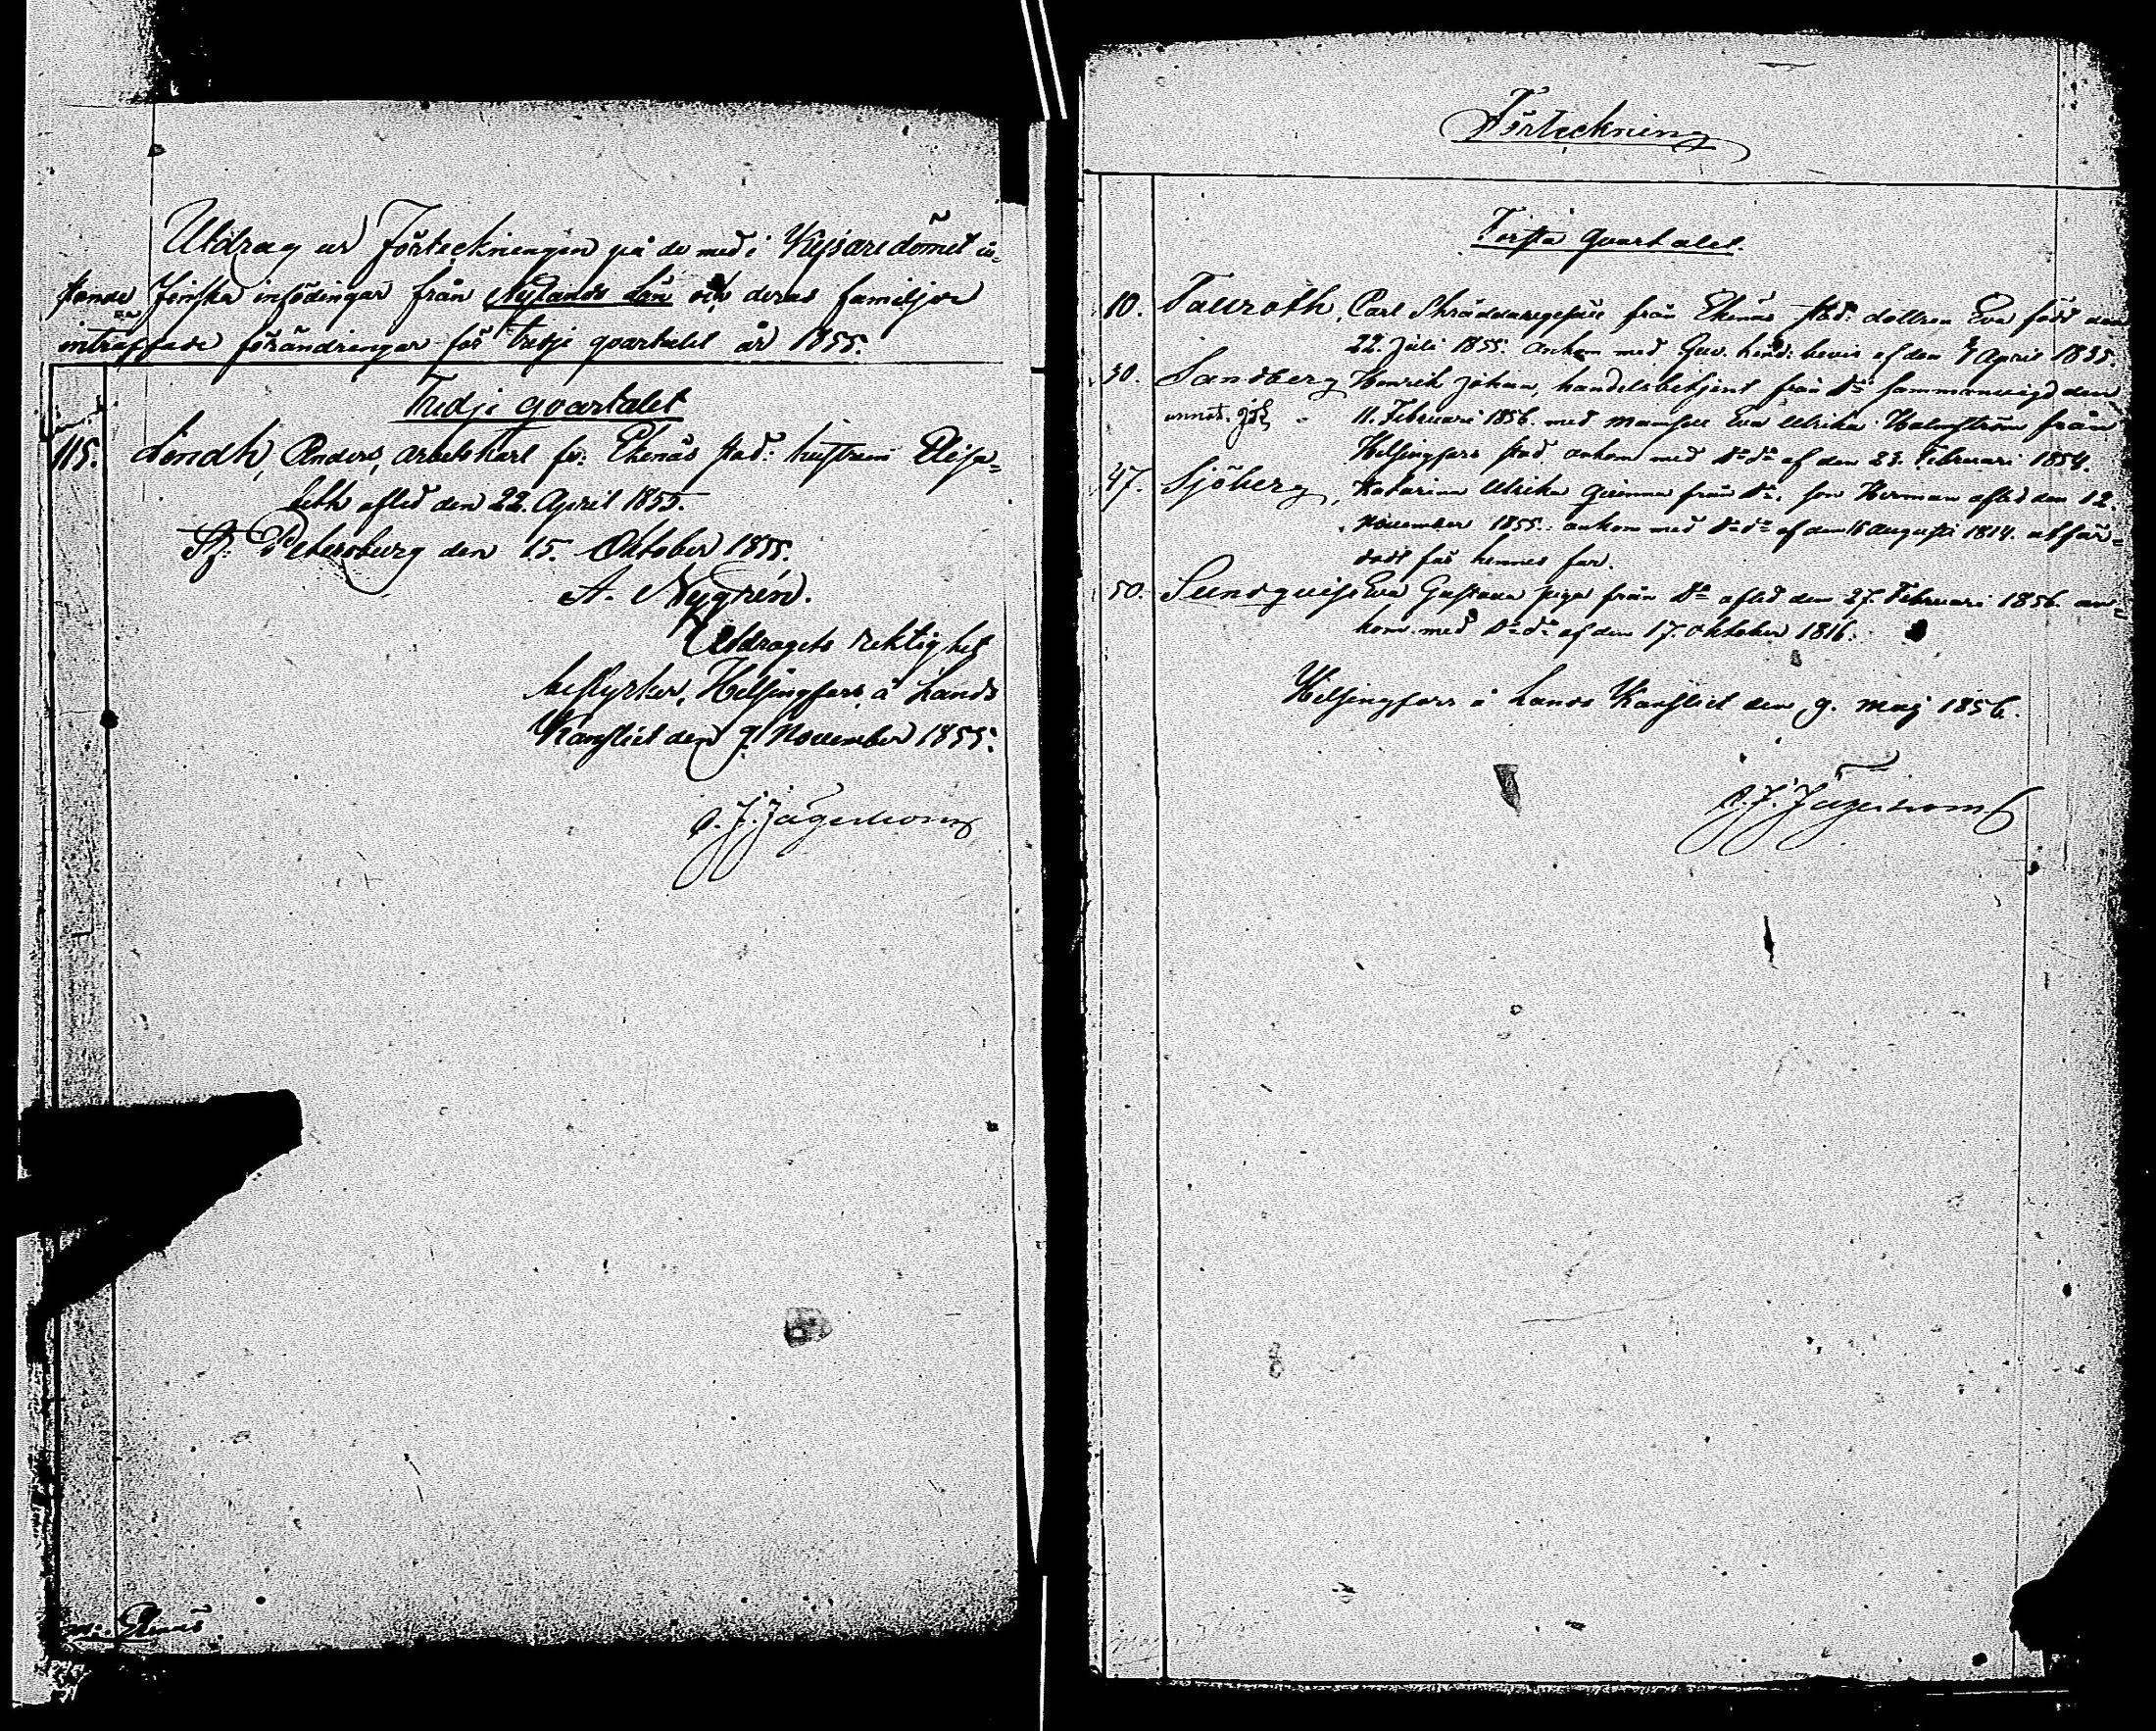 Utdrag ur Förteckningen på de med i Kejsaredömet vi-
stande Finska infödingar från Nylands Län och deras familjer
inträffade förändringar för tredje qvartalet år 1855.
Tredje qvartalet
115. Lindh, Anders, arbetskarl fr: Ekenäs stad: hustrun Elisa-
beth afled den 22. April 1855.
St: Petersburg den 15. Oktober 1855.
A. Nygrén.
Utdragets riktighet
bestyrker, Helsingfors å Lands
Kansliet den 9 November 1855.
C. J. Jägerhorn
Ekenäs
Förteckning
Första Qvartalet.
10. Tauroth, Carl Skräddaregesäll från Ekenäs stad: dottren Eva född den
22. Juli 1855. ankom med Guv. bevis af den April 1835.
30. Sandberg Henrik Johan, handelsbetjent från Do: sammanvigd den
11. Februari 1856. med mamsell Eva Ulrika Holmström från
Helsingfors stad ankom med Do do af den 23. Februari 1854.
47. Sjöberg, Katarina Ulrika qvinna från Do. son Herman afled den 12.
November 1855. ankom med Do do af den 16 Augusti 1814. utfär-
dadt för hennes far.
50. Sundqvist Eva Gustava piga från Do afled den 27. Februari 1856. an-
kom med Do do af den 17. Oktober 1816.
Helsingfors å Lands Kansliet den 9. Maj 1856.
C. J. Jägerhorn